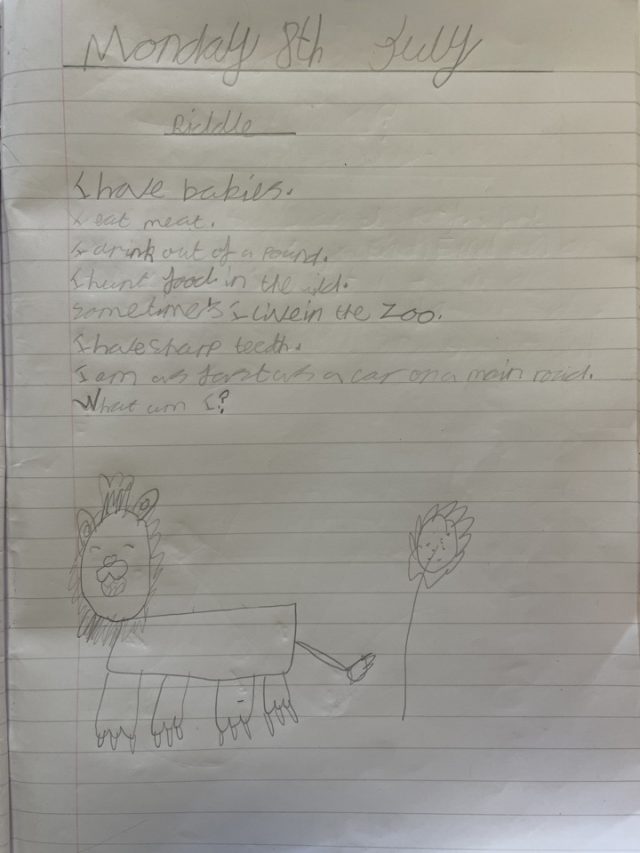 Monday 8th July
Riddle
I have babies.
I eat meat.
I drink out of a pound.
I hunt food in the wild.
Sometimers I live in the Zoo.
I have sharp teeth.
I am as fast as a car on a main road.
What am I?